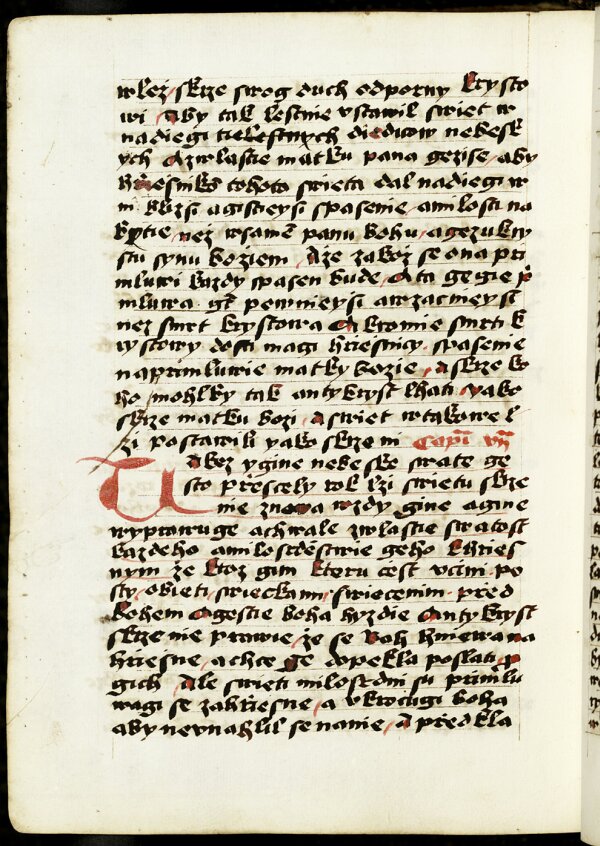 w lež skrze swog duch odporny krysto
wi aby tak lestnie vstawil swiet w
nadiegi tielestnych diedicow nebesk
ych Azwlastie matku pana gezise aby
hriesnikō tohoto swieta dal nadiegi w
ni blizsi agistieysi spasenie amilosti na
bytie než wsamē panu bohu agezukry
stu synu boziem Aže zakož se ona pri
mluwi kazdy spasen bude Ata gegie p
mluwa gē pewnieysi awzacnieysi
nez smrt krystowa Akromie smrti k
rystowy dosti magi hriesnicy spasenie
naprimluwie matky bozie Askrze ko
ho mohlby tak antykryst lhati yako
skrze matku bozi Aswiet wtakowe l
zi postawili yako skrze ni Capi vii
Abez ygine nebeske swate ge
sto presceły rok lzi swietu skrze
nie znowa wzdy gine agine
wyprawuge achwale zwlastie swatost
kazdeho amilostdēstwie geho khries
nym že ktoz gim kteru cest vcini po
sty obieti swieckami swiecenim pred
bohem Agestie boha hyzdie Antykryst
skrze nie prawie že se boh hniewa na
hriesne achce ge dopekla poslati p
gich Ale swieti milosrdni su primlu
wagi se zahriesne a vkrocugi boha
aby neynahlil se nanie Apredkla